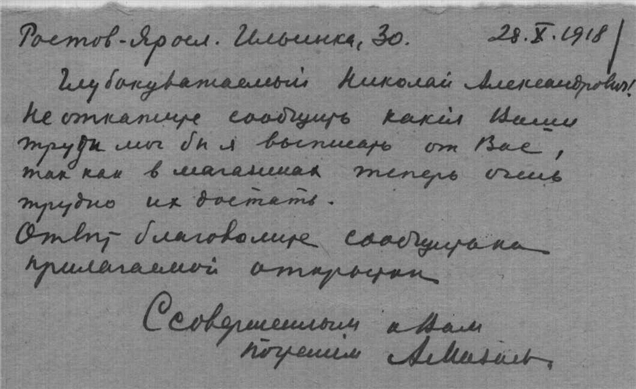 Ростов-Яросл. Ильинка, 30. 28. X. 1918
Глубокуважаемый Николай Александрович!
Не откажите сообщить какия Ваши
труды мог бы я выписать от Вас,
так как в магазинах теперь очень
трудно их достать.
Ответ благоволите сообщить на
прилагаемой открытки
С совершенным к Вам
почтением